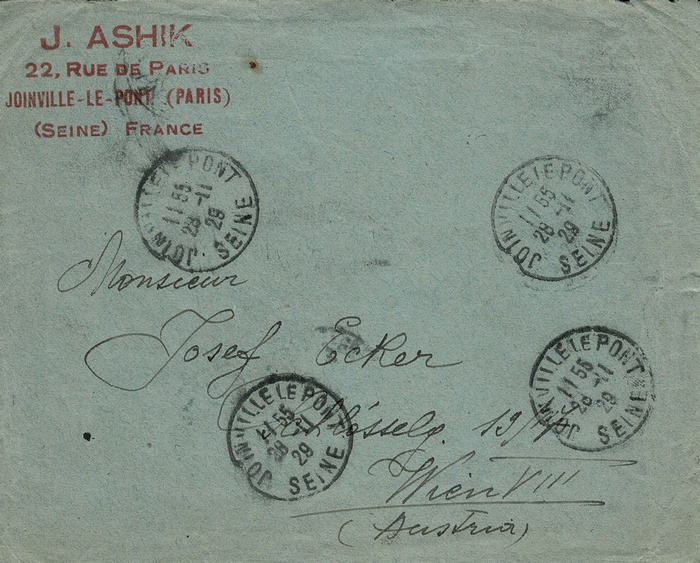 J. ASHIK
22, RUE DE PARIS
JOINVILLE-LE-PONT (PARIS)
(SEINE) FRANCE
JOINVILLE LE PONT
11 55
28 -11
29
SEINE
JOINVILLE LE PONT
11 55
28 -11
29
SEINE
Monsieur
Josef Ecker
JOINVILLE LE PONT
11 55
28 -11
29
SEINE
JOINVILLE LE PONT
11 55
28 -11
29
SEINE
Schlösselg.
Wien VIII
(Austria)